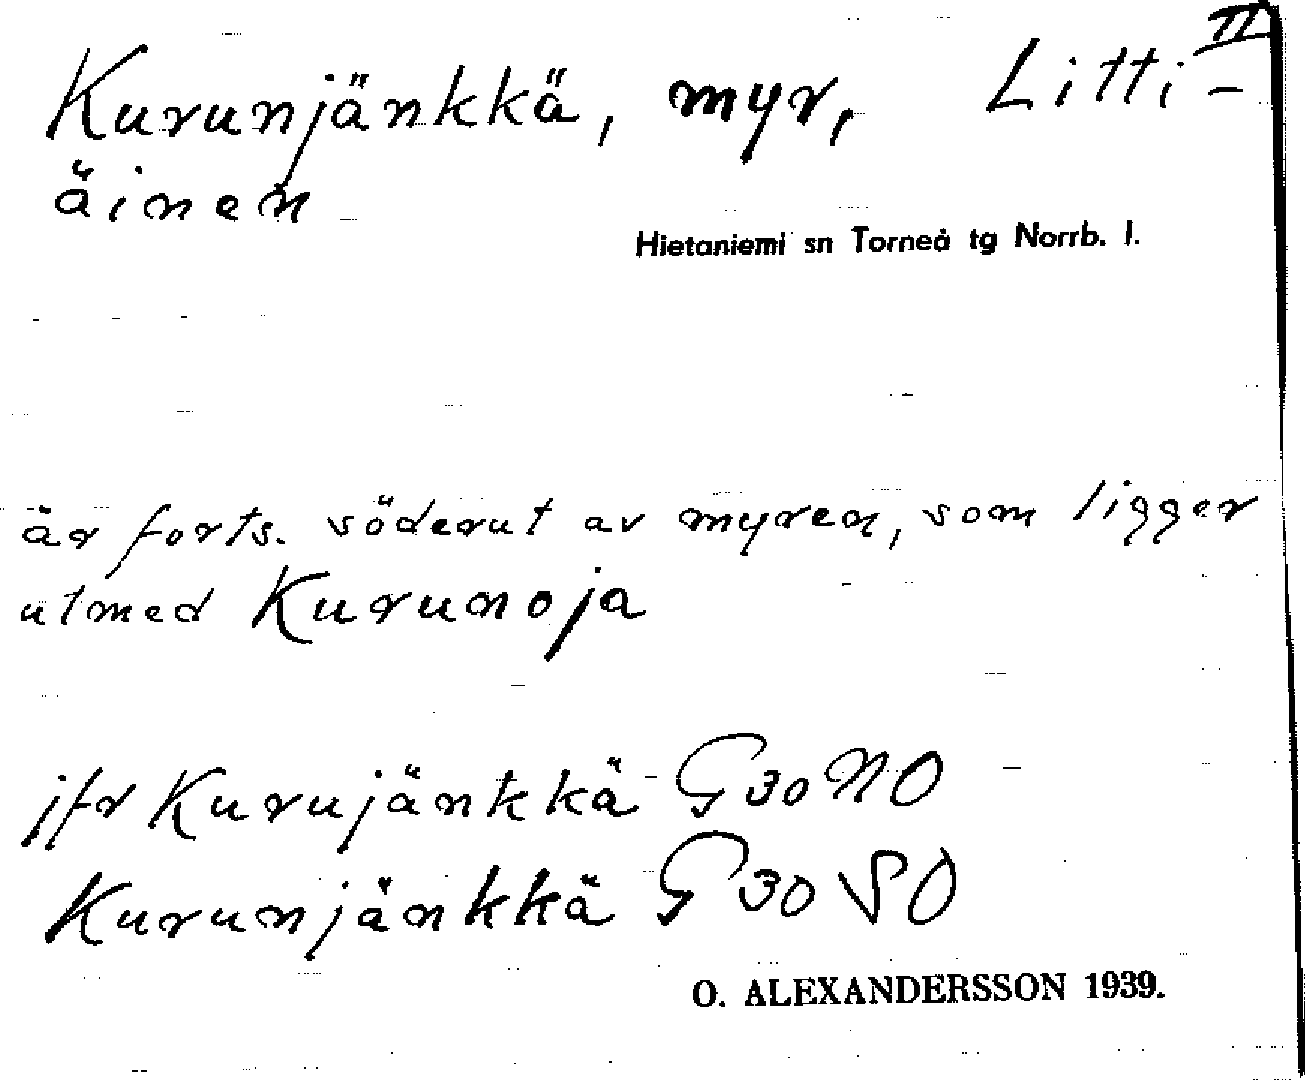 II
Kurunjänkkä, myr, Litti-
äinen
Hietaniemi sn Torneå tg Norrb. l.
är forts. söderut av myren, som ligger
utmed Kurunoja
jfr Kurujänkkä G30NO
Kurunjänkkä G30SO
O. ALEXANDERSSON 1939.